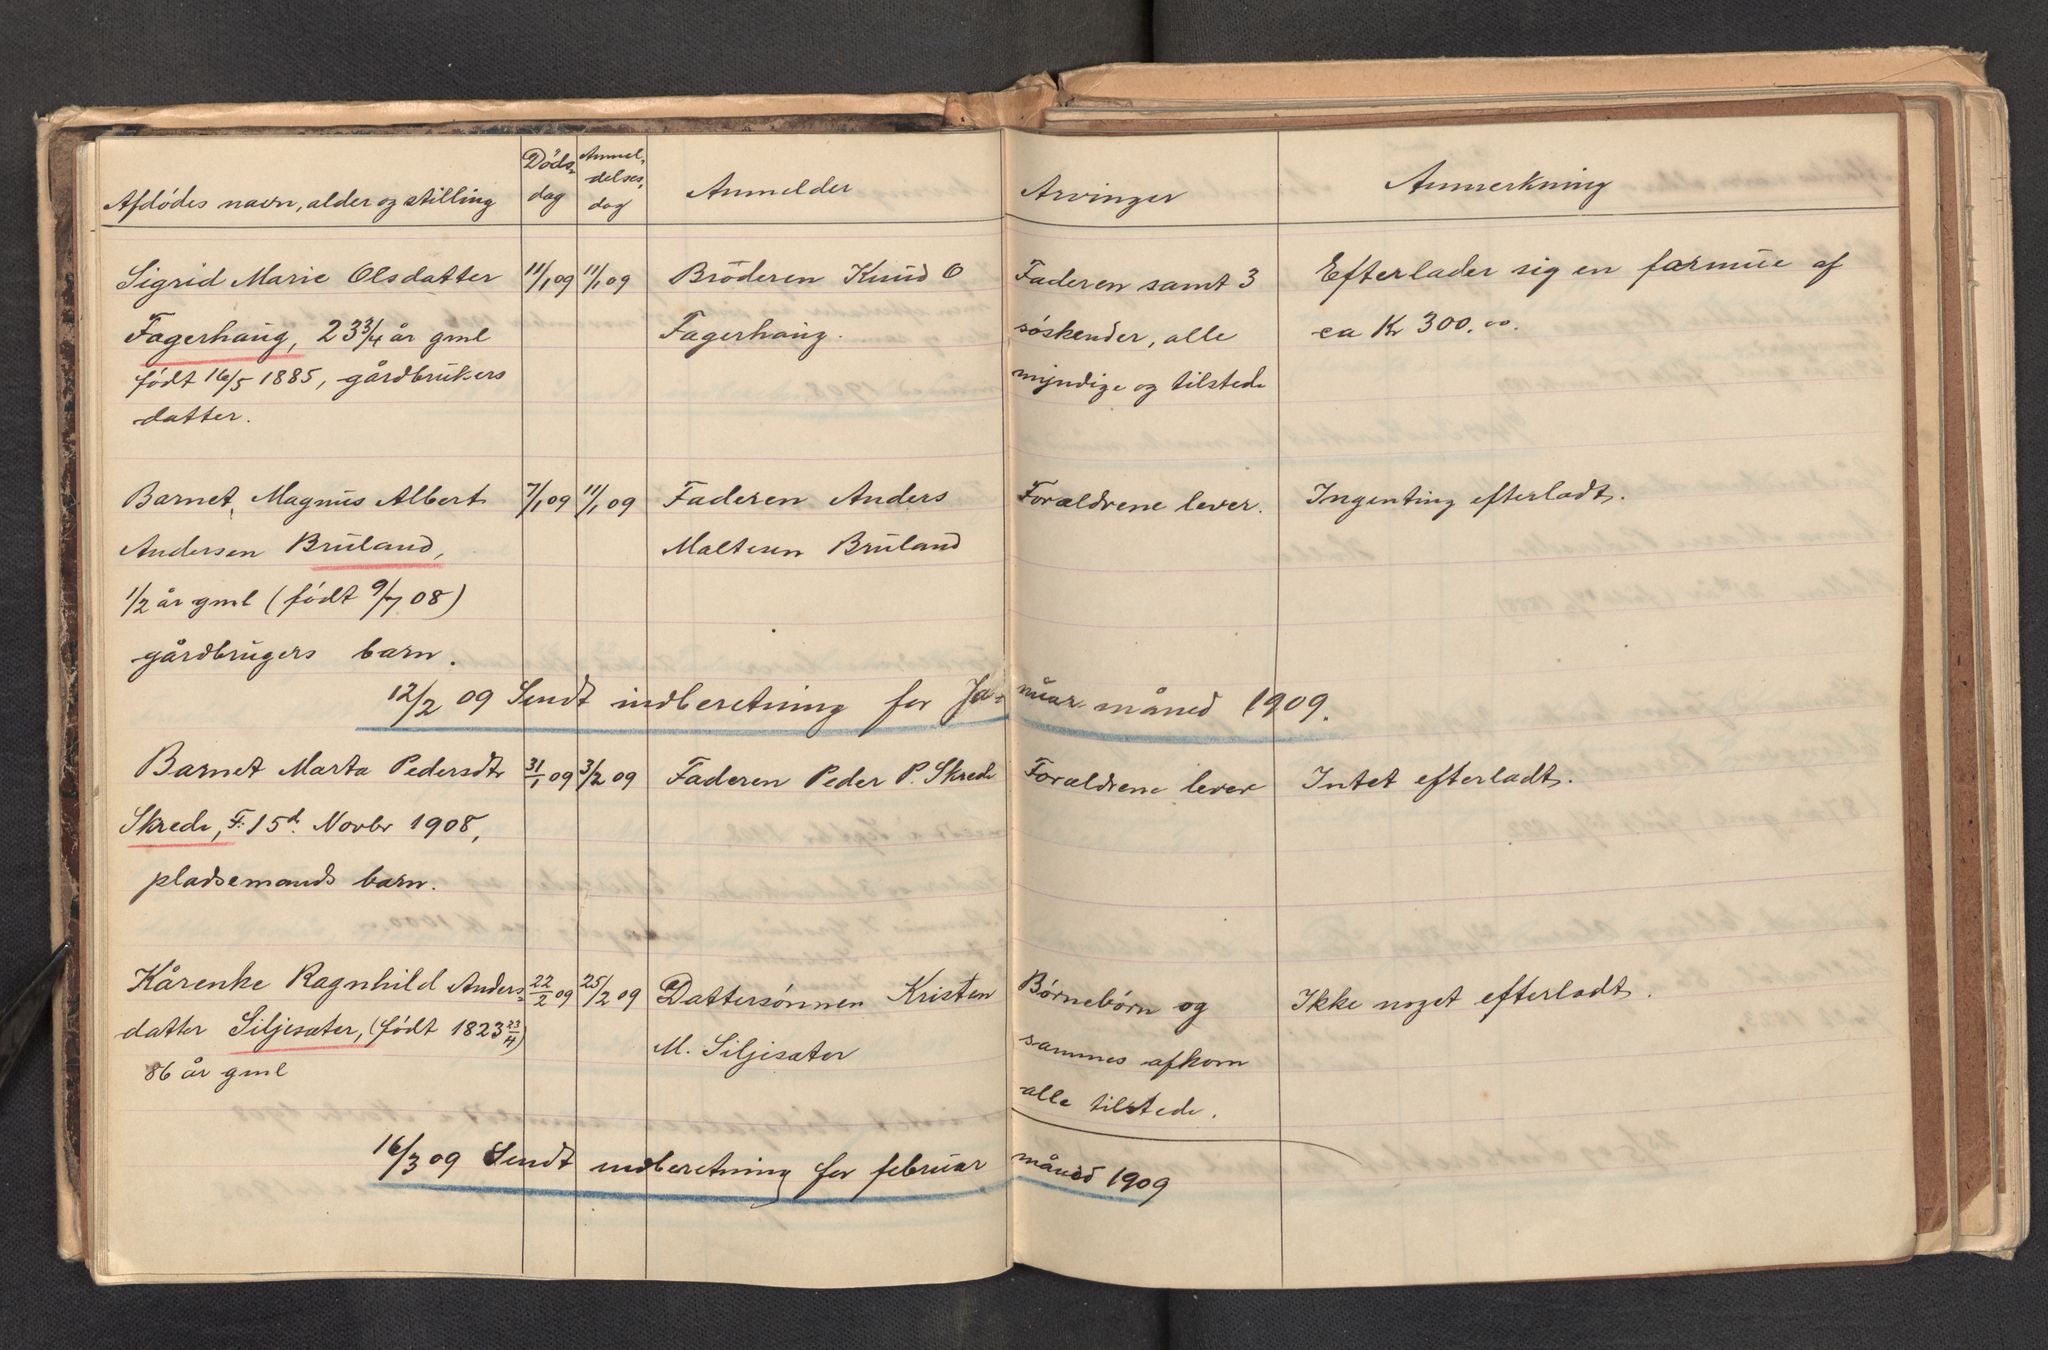 Afdødes navn, alder og stilling
Døds-
dag
Anmel-
delses-
dag
Anmelder
Arvinger
Anmerkning
Sigrid Marie Olsdatter
Fagerhaug, 23 3/4 år gml
født 16/5 1885, gårdbrukers
datter.
11/1 09
11/1 09
Brøderen Knud O
Fagerhaug.
Faderen samt 3
søskender, alle
myndige og tilstede
Efterlader sig en formue af
ca Kr 300.00.
Barnet, Magnus Albert
Andersen Bruland,
1/2 år gml (født 9/7 08)
gårdbrugers barn.
7/1 09
11/1 09
Faderen Anders
Maltesen Bruland
Forældrene lever.
Ingenting efterladt.
12/2 09 Sendt indberetning for Januar måned 1909.
Barnet Marta Pedersdtr
Skrede, F. 15d Novbr 1908,
pladsemands barn.
31/1 09
3/2 09
Faderen Peder P. Skrede
Forældrene lever
Intet efterladt.
Kårenke Ragnhild Anders-
datter Siljesæter, (født 1823 23/4)
86 år gml
22/2 09
25/2 09
Dattersønnen Kristen
M. Siljisæter
Børnebørn og
sammes afkom
alle tilstede.
Ikke noget efterladt.
16/3 09 Sendt indberetning for februar måned 1909